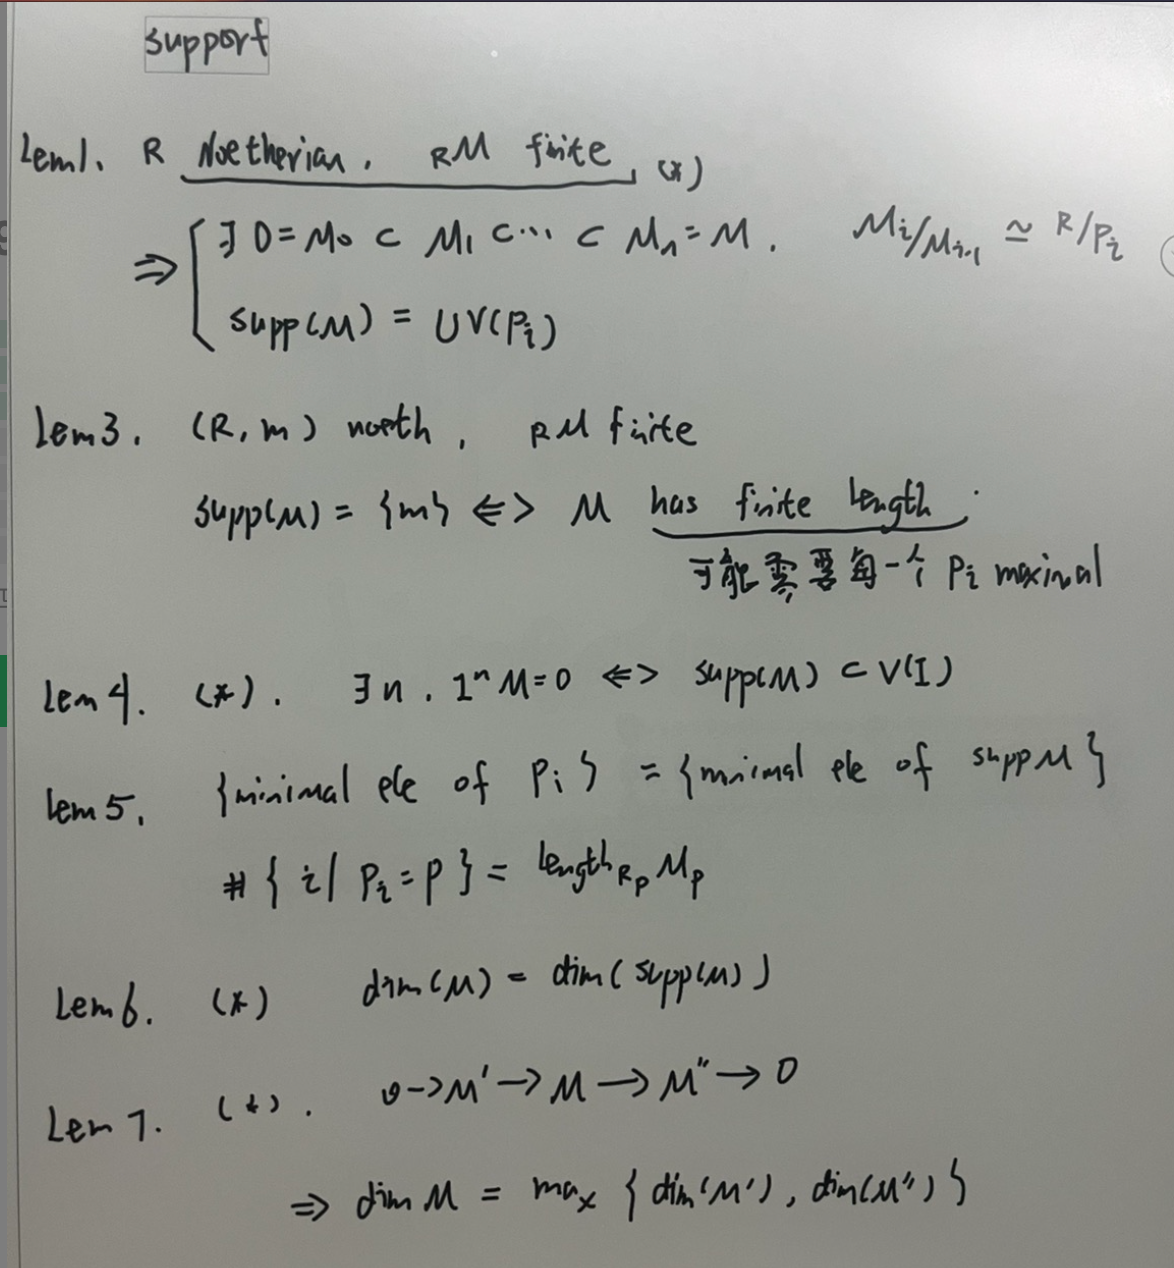 support
Lem1. R Noetherian, RM finite (*)
⇒ ∃ 0 = M₀ ⊂ M₁ ⊂ ··· ⊂ Mₙ = M. Mᵢ/Mᵢ₋₁ ≃ R/Pᵢ
supp(M) = ∪V(Pᵢ)
Lem3. (R, m) noeth, RM finite
supp(M) = {m} <=> M has finite length.
可能需要每一个 Pᵢ maximal
Lem 4. (*). ∃n. IⁿM=0 <=> supp(M) ⊂ V(I)
Lem 5. {minimal ele of Pᵢ} = {minimal ele of supp M}
# { i | Pᵢ = P } = length_{R_P} M_P
Lem 6. (*) dim(M) = dim(supp(M))
Lem 7. (*). 0 → M' → M → M'' → 0
⇒ dim M = max { dim(M'), dim(M'') }